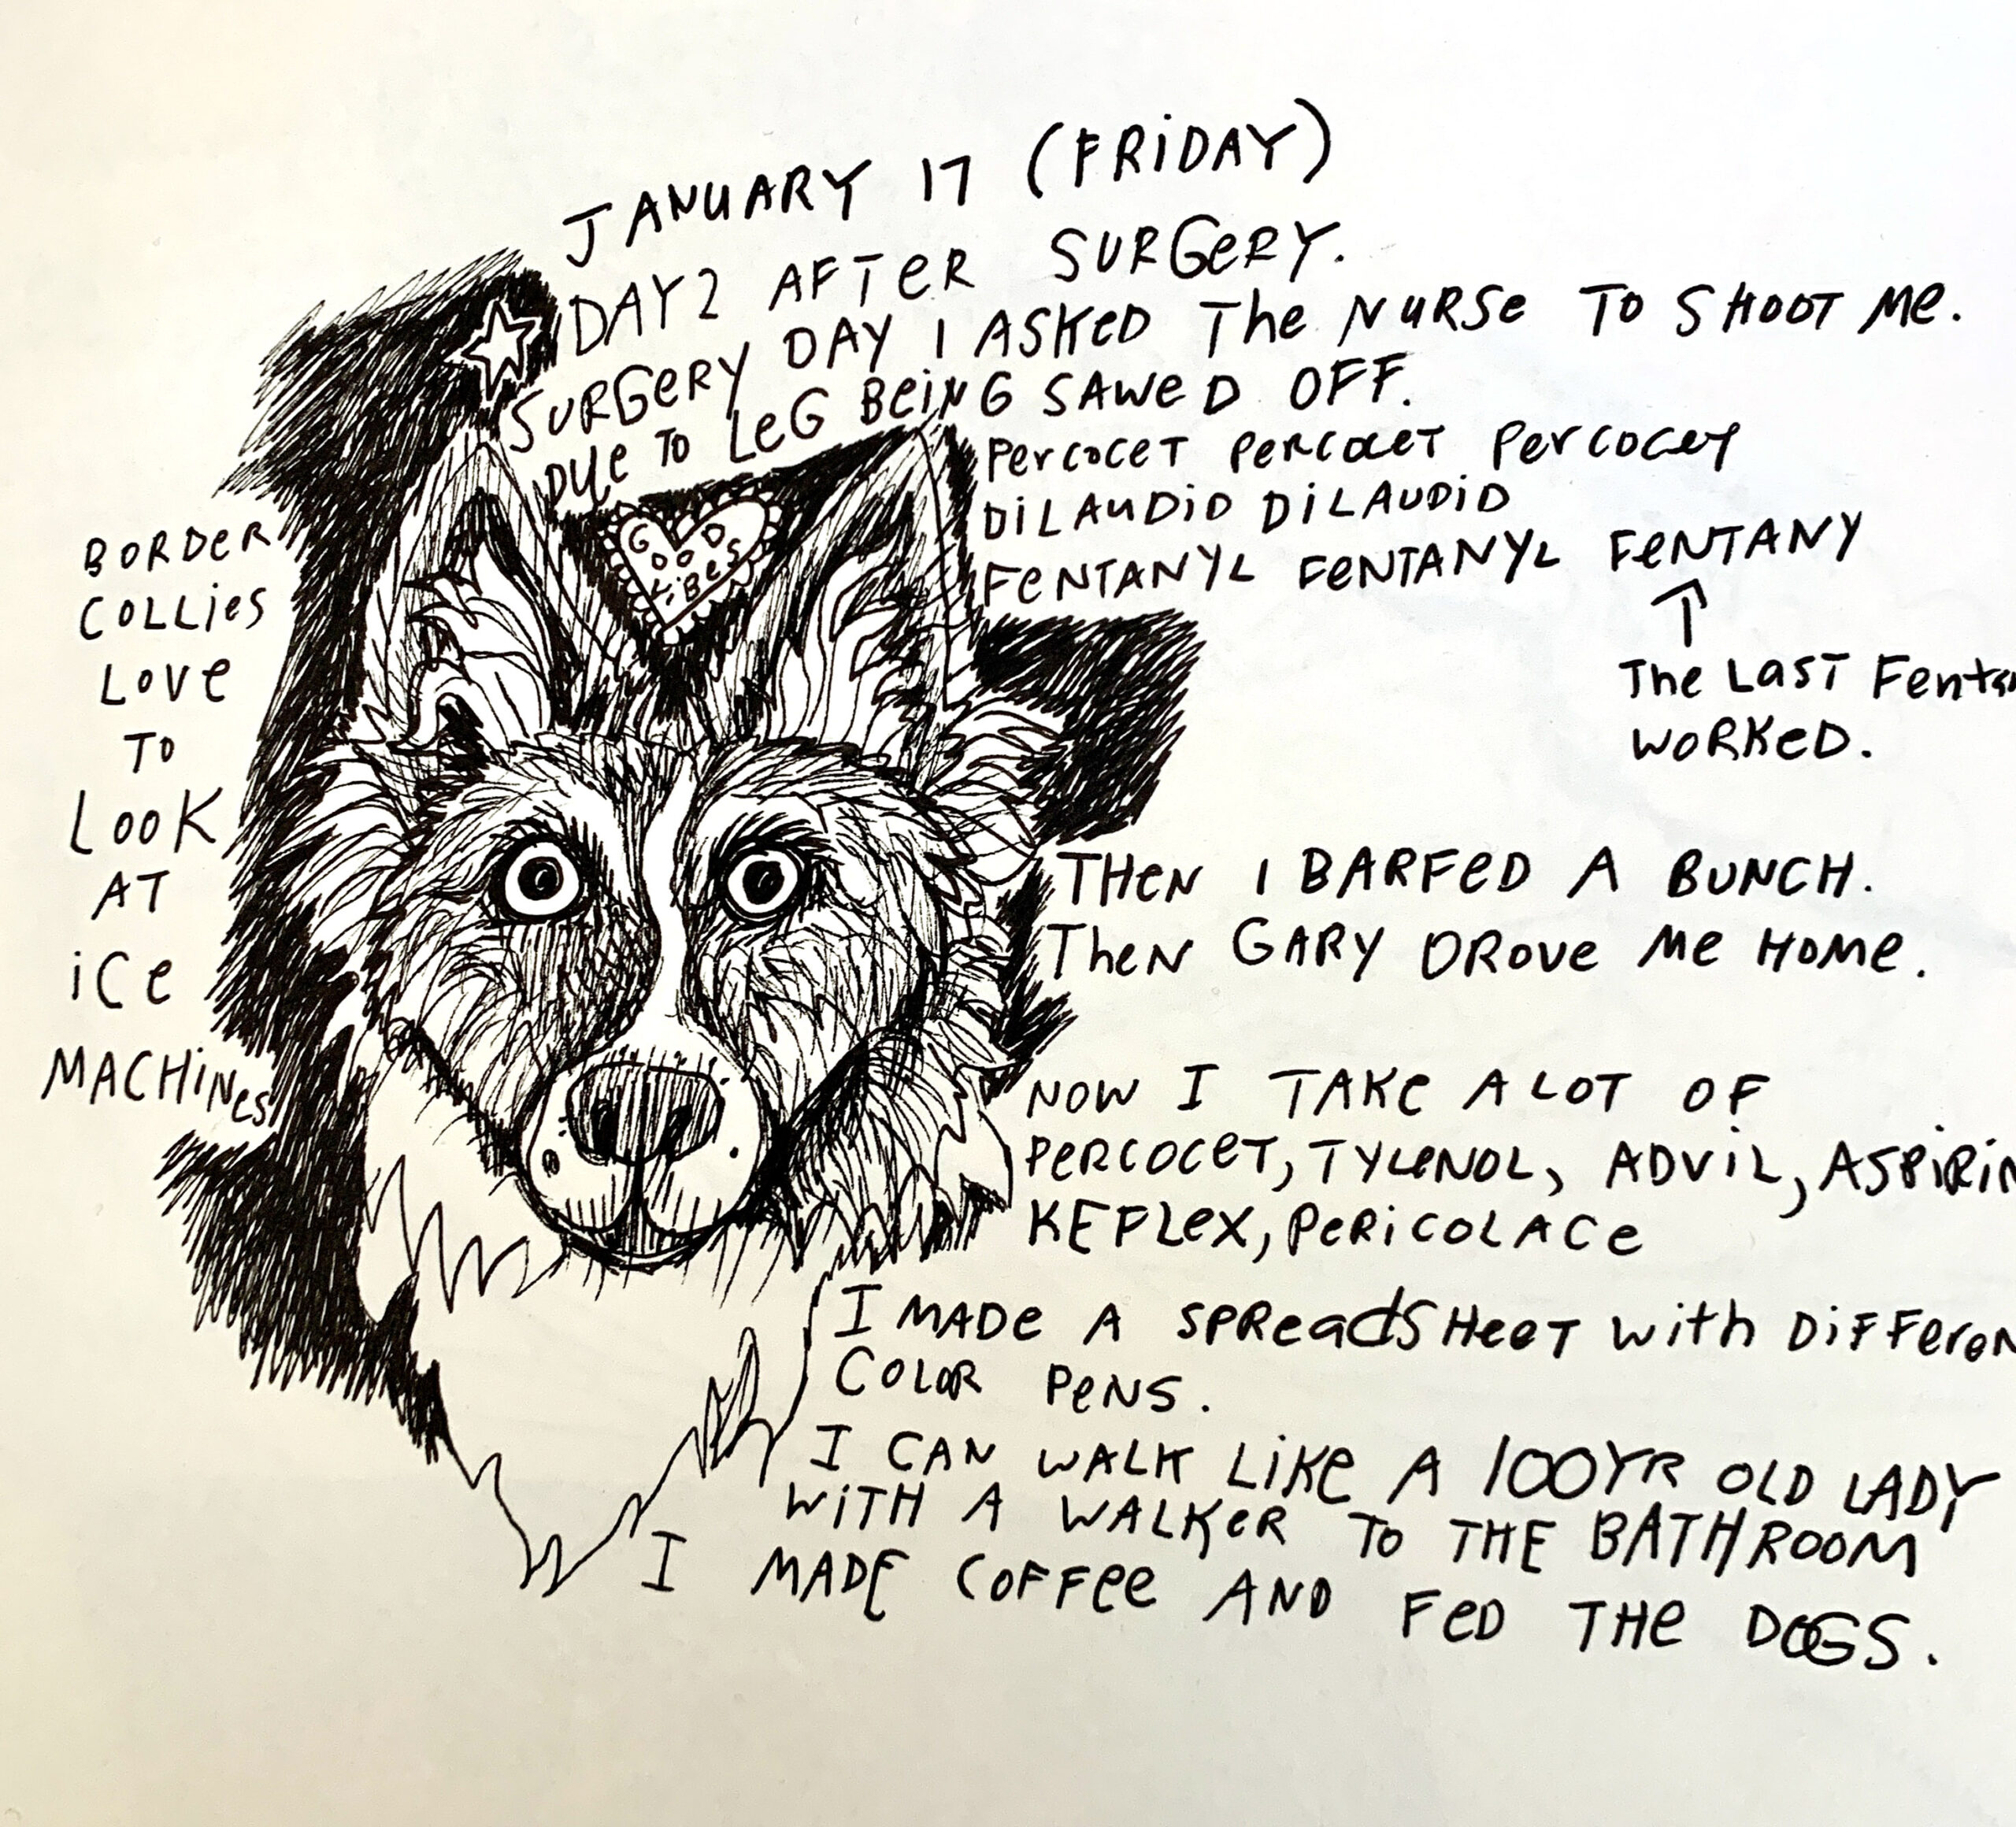 JANUARY 17 (FRIDAY)
DAY 2 AFTER SURGERY.
SURGERY DAY I ASKED THE NURSE TO SHOOT ME.
DUE TO LEG BEING SAWED OFF.
PERCOCET PERCOCET PERCOCET
DILAUDID DILAUDID
FENTANYL FENTANYL FENTANY
THE LAST
WORKED.
GOOD
VIBES
BORDER
COLLIES
LOVE
TO
LOOK
AT
ICE
MACHINES
THEN I BARFED A BUNCH.
THEN GARY DROVE ME HOME.
NOW I TAKE A LOT OF
PERCOCET, TYLENOL, ADVIL, ASPIRIN
KEFLEX, PERICOLACE
I MADE A SPREADSHEET WITH DIFFEREN
COLOR PENS.
I CAN WALK LIKE A 100YR OLD LADY
WITH A WALKER TO THE BATHROOM
I MADE COFFEE AND FED THE DOGS.